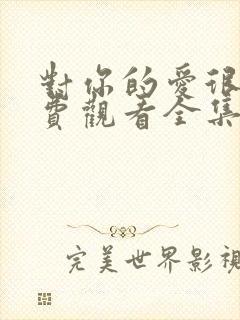 對你的愛很
費觀看全集
完美世界影視